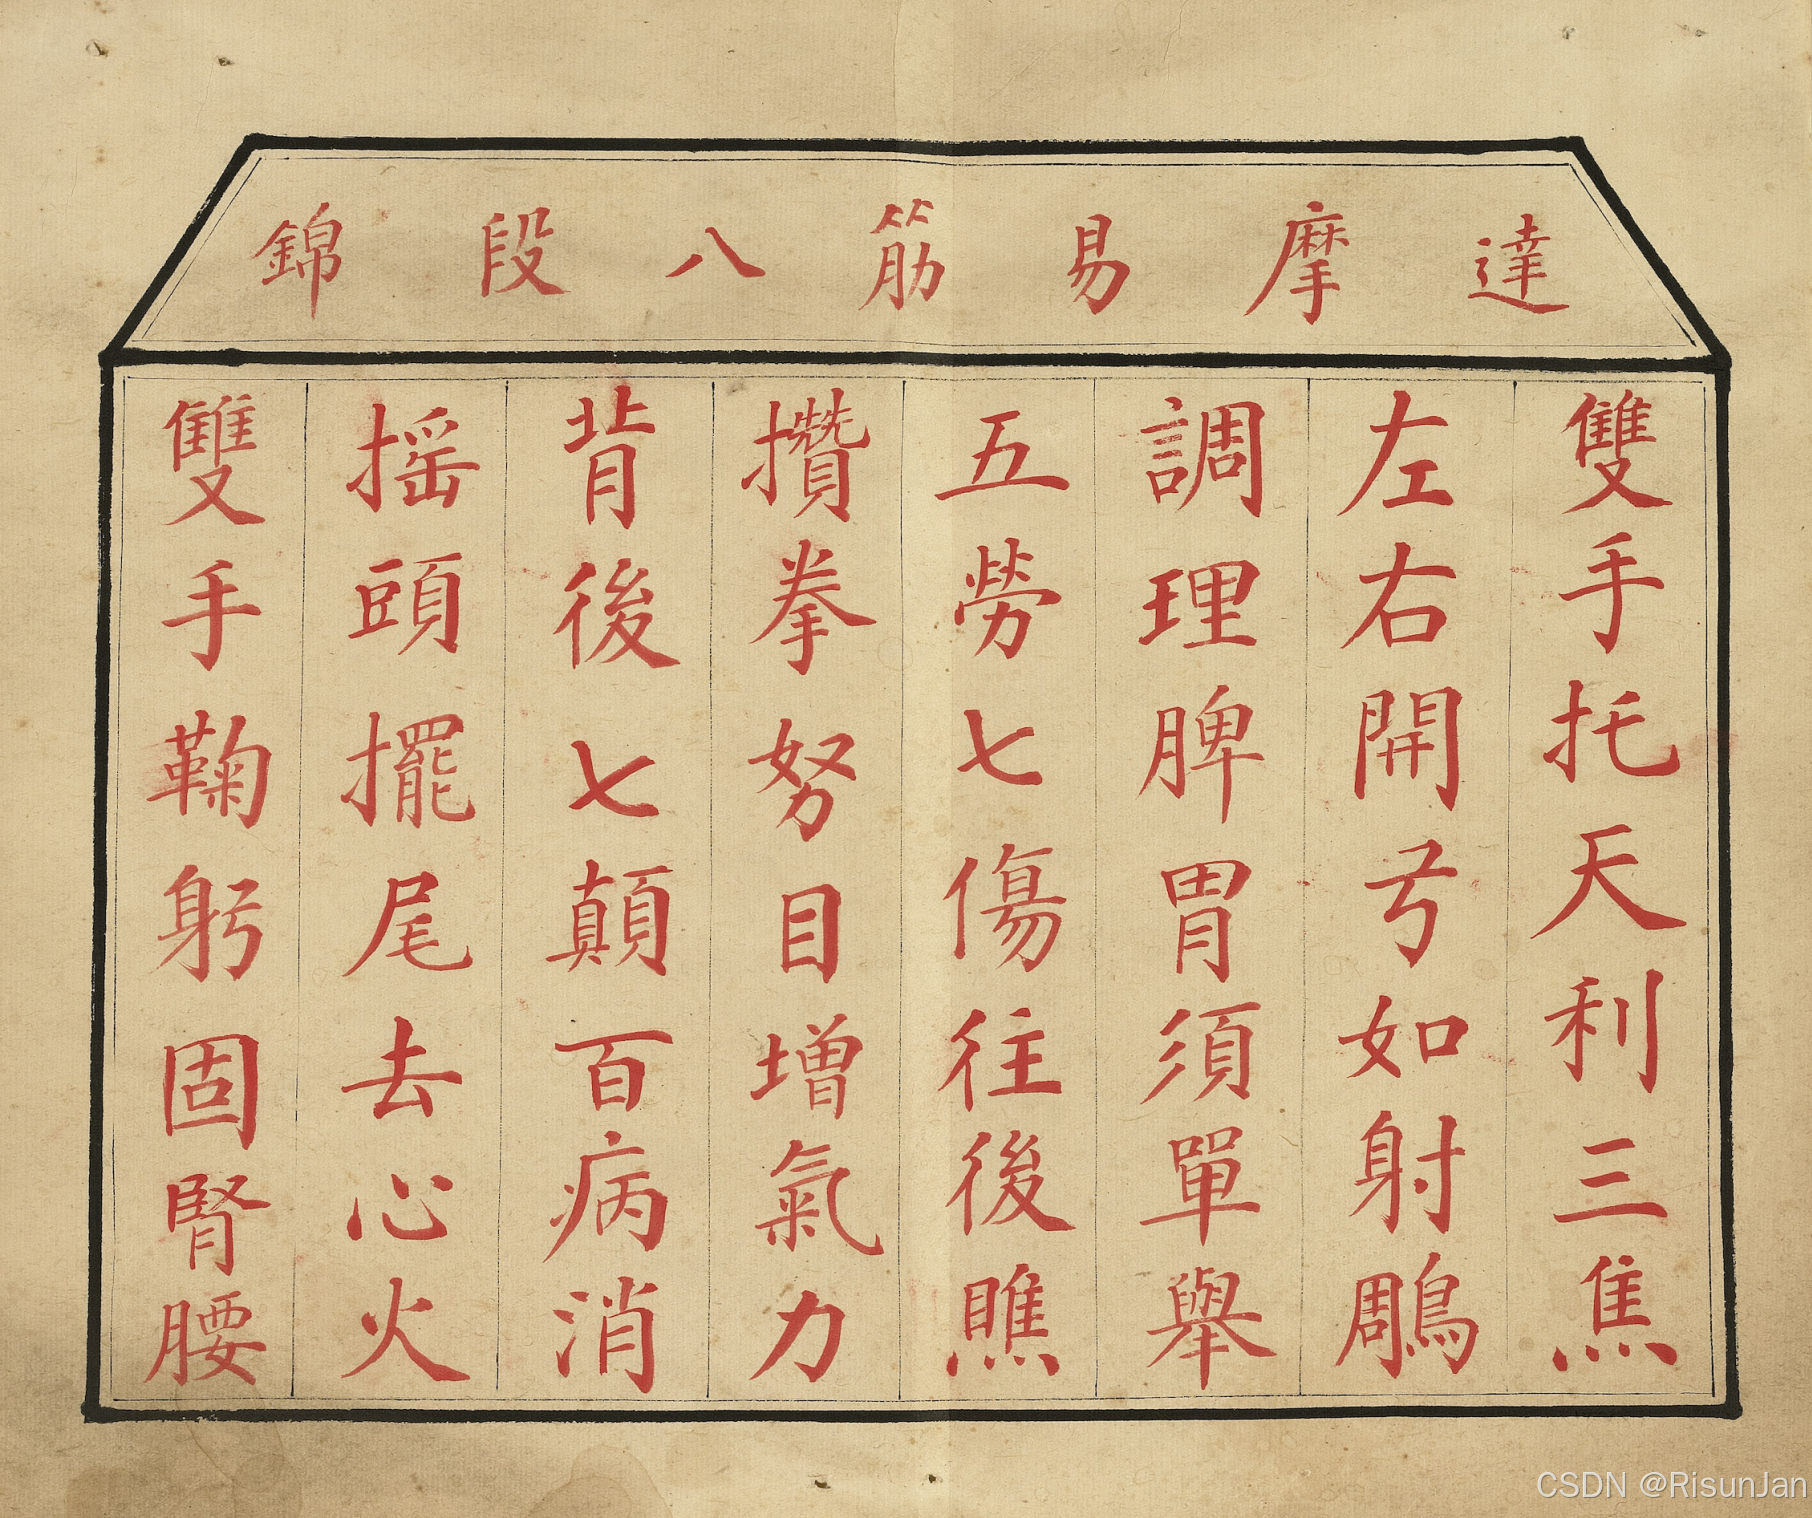 達摩易筋八段錦
雙手托天利三焦
左右開弓如射鵰
調理脾胃須單舉
五勞七傷往後瞧
攢拳努目增氣力
背後七顛百病消
搖頭擺尾去心火
雙手鞠躬固腎腰
CSDN @RisunJan